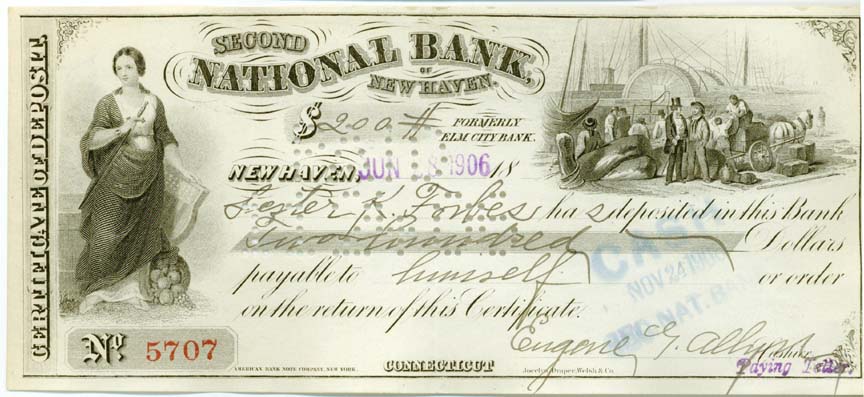 CERTIFICATE OF DEPOSIT.
SECOND
NATIONAL BANK,
OF
NEW HAVEN.
$ 200
FORMERLY
ELM CITY BANK.
NEW HAVEN, JUN 28 1906 18
Lester K. Forbes has deposited in this Bank
Two hundred Dollars
payable to himself or order
on the return of this Certificate.
NOV 24 1906
SEC. NAT. BA
Eugene G. Allyn
Cashier
Paying Teller.
No 5707
AMERICAN BANK NOTE COMPANY, NEW YORK.
CONNECTICUT
Jocelyn, Draper, Welsh & Co.